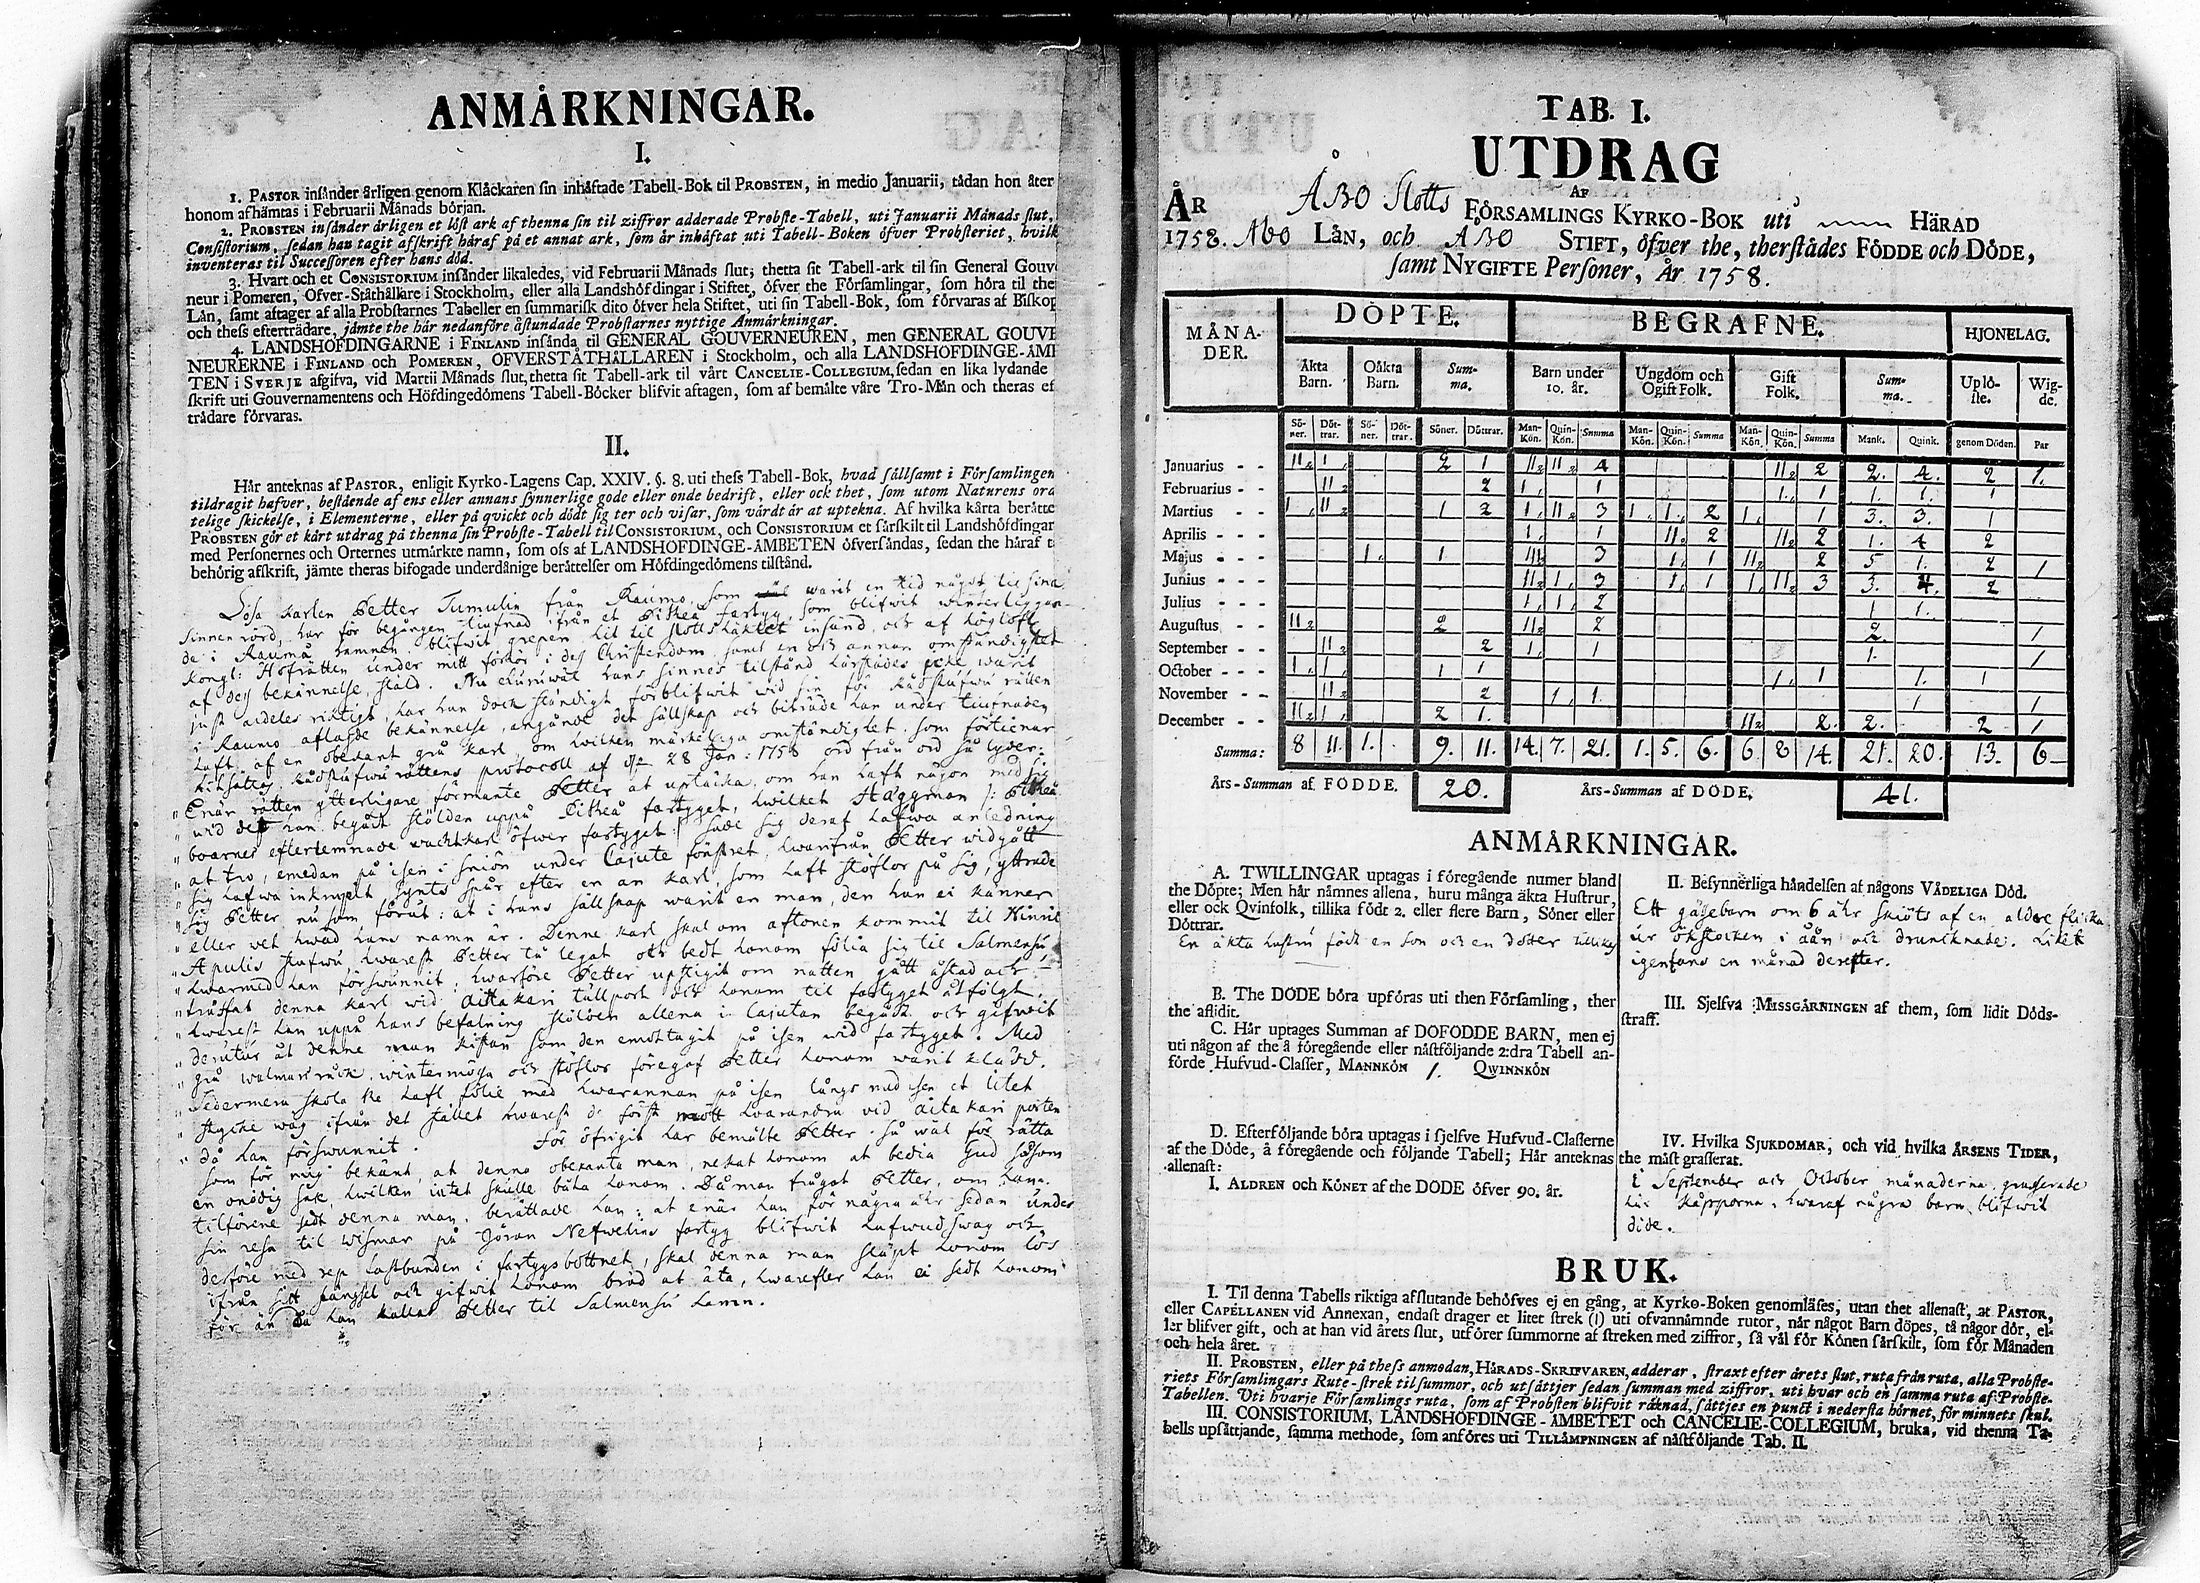 ANMÄRKNINGAR.
I.
1. PASTOR insånder årligen genom Klåckaren sin inhåftade Tabell-Bok til PROBSTEN, in medio Januarii, tådan hon åter
honom afhämtas i Februarii Månads början.
2. PROBSTEN insånder årligen et löst ark af thenna sin til ziffror adderade Probste-Tabell, uti Januarii Månads slut,
Consistorium, sedan han tagit afskrift håraf på et annat ark, som är inhåftat uti Tabell-Boken öfver Probsteriet, hvilk
inventeras til Successoren efter hans död.
3. Hvart och et CONSISTORIUM insånder likaledes, vid Februarii Månads slut, thetta sit Tabell-ark til sin General Gouv
neur i Pomeren, Ofver-Ståthållare i Stockholm, eller alla Landshöfdingar i Stiftet, öfver the Församlingar, som höra til the
Lån, samt aftager af alla Probstarnes Tabeller en summarisk dito öfver hela Stiftet, uti sin Tabell-Bok, som förvaras af Biskop
och thess efterträdare, jämte the hår nedanföre åstundade Probstarnes nyttige Anmärkningar.
4. LANDSHÖFDINGARNE i FINLAND insånda til GENERAL GOUVERNEUREN, men GENERAL GOUVE
NEURERNE i FINLAND och POMEREN, ÖFVERSTÅTHÅLLAREN i Stockholm, och alla LANDSHÖFDINGE-ÅMB
TEN i SVERJE afgifva, vid Martii Månads slut, thetta sit Tabell-ark til vårt CANCELIE-COLLEGIUM, sedan en lika lydande
skrift uti Gouvernamentens och Höfdingedömens Tabell-Böcker blifvit aftagen, som af bemålte våre Tro-Mån och theras ef
trådare förvaras.
II.
Hår anteknas af PASTOR, enligit Kyrko-Lagens Cap. XXIV. §. 8. uti thess Tabell-Bok, hvad sållsamt i Församlingen
tildragit hafver, bestående af ens eller annans synnerlige gode eller onde bedrift, eller ock thet, som utom Naturens ord
telige skickelse, i Elementerne, eller på qvickt och dödt sig ter och visar, som vårdt år at uptekna. Af hvilka kårta berätte
PROBSTEN gör et kårt utdrag på thenna sin Probste-Tabell til CONSISTORIUM, och CONSISTORIUM et sårskilt til Landshöfdingar
med Personernes och Orternes utmårkte namn, som oss af LANDSHÖFDINGE-ÅMBETEN öfversåndas, sedan the håraf t
behörig afskrift, jämte theras bifogade underdånige beråttelser om Höfdingedömens tilstånd.
Lösa karlen Petter Tumulin från Raumo, som warit en tid något til sina
sinnen rörd, har för begången tiufnad ifrån et Pitkeå fartyg, som blifwit winterliggan-
de i Raumå hamnen blifwit grepen hit til slottshäktet insänd, och af höglofl.
Kongl: Hofrätten under mitt förhör i des Christendom samt en och annan omständighet
af des bekännelse, stäld. Nu ehuruwäl hans sinnes tilstånd härstädes icke warit
just aldeles riktigt, har han dock ständigt förblifwit wid sin för Rådstufwu rätten
i Raumo aflagde bekännelse, angånde det sällskap och biträde han under tiufnaden
haft af en obekant grå karl, om hwilken märkeliga omständighet som förtienar
Rådstufwu rättens protocoll af d. 28 Jan: 1758 ord från ord så lyder:
Enär rätten ytterligare förmante Petter at uptäcka, om han haft någon med sig
wid det han begådt stölden uppå Pitkeå fartyget, hwilket Häggman
boarnes efterlemnade wachtkarl öfwer fartyget sade sig deraf hafwa anledning
at tro, emedan på isen i sniön under Cajute fönstret, hwarifrån Petter widgått
sig hafwa inkrupit synts spår efter en an karl, som haft stöflor på sig, yttrade
sig Petter nu som förut: at i hans sällskap warit en man, den han ei känner
eller wet hwad hans namn är. Denne karl skal om aftonen kommit til Hinric
Apulis stufwu, hwarest Petter tå legat och bedt honom fölia sig til Salmensu,
hwarmed han förswunnit, hwarföre Petter upstigit om natten gått åstad och
träffat denna karl wid Aitakari tullport och honom til fartyget åtföljgt,
hwarest han uppå hans befalning stölden allena i Cajutan begådt och gifwit
derutur åt denne man kistan som den emottagit på isen wid fartyget. Med
grå walmars råck, wintermössa och stöflor föregaf Petter honom warit klädd.
Sedermera skola de haft fölie med hwarannan på isen långs med isen et litet
stycke wäg ifrån det stället hwarest de först mött hwarandra vid Aitakari porten
då han förswunnit.
För öfrigit har bemälte Petter så wäl för rätta
som för mig bekänt, at denna obekanta man, nekat honom at bedia Gud såsom
en onödig sak, hwilken intet skulle båta honom. Då man frågat Petter, om han
tilförene sedt denna man, berättade han: at enär han för några åhr sedan under
sin resa til Wismar på Jöran Nefwelins fartyg blifwit hufwudswag och
derföre med rep fastbunden i fartygsbottnet, skal denna man släpt honom lös
ifrån sitt fängsel och gifwit honom bröd at äta, hwarefter han ei sedt honom
för än då han kallat Petter til Salmensu hamn.
TAB. I.
UTDRAG
AF
ÅR ÅBO Slotts FÖRSAMLINGS KYRKO-BOK uti HÄRAD
1758. Åbo LÅN, och ÅBO STIFT, öfver the, therstådes FÖDDE och DÖDE,
samt NYGIFTE Personer, År 1758.
MÅNA-DER. DÖPTE. BEGRAFNE. HJONELAG.
Åkta Barn. Oåkta Barn. Sum-ma. Barn under 10. år. Ungdom och Ogift Folk. Gift Folk. Sum-ma. Uplö-ste. Wig-de.
Sö-ner. Döt-trar. Sö-ner. Döt-trar. Söner. Döttrar. Man-Kön. Quin-Kön. Summa Man-Kön. Quin-Kön. Summa Man-Kön. Quin-Kön. Summa Mank. Quink. genom Döden. Par
Januarius - - II2 1 2 1 II2 II2 4 II2 2 2. 4. 2 1.
Februarius - - II2 2 1. 1 1. 1 1. 1. 1
Martius - - 1. II2 1 2 1. II2 3 1. 1. 2 1. 1 3. 3. 1
Aprilis - - 1. 1 II2 2 II2 2 1. 4 2
Majus - - 1. 1 III 3 1. 1 II2 2 5 1. 2 1
Junius - - II2 1. 3 1. 1 1. II2 3 3. 4. 2
Julius - - 1. 1. 2 1 1.
Augustus - - II2 2 II2 2 2. 1
September - - II2 2 1. 1 1. 1
October - - 1. 1 1 1 1. 1 1. 1
November - - II2 2 1. 1. 1 1
December - - II2 1. 2 1. II2 2. 2. 2 1
Summa: 8 11. 1. . 9. 11. 14. 7. 21. 1. 5. 6. 6 8 14. 21. 20. 13. 6
Års-Summan af FÖDDE. 20. Års-Summan af DÖDE. 41.
ANMÄRKNINGAR.
A. TWILLINGAR uptagas i föregående numer bland
the Döpte; Men hår nåmnes allena, huru många åkta Hustrur,
eller ock Qvinfolk, tillika födt 2. eller flere Barn, Söner eller
Döttrar.
En äkta hustru födt en son och en dotter tillika
B. The DÖDE böra upföras uti then Församling, ther
the aflidit.
C. Hår uptages Summan af DÖFÖDDE BARN, men ej
uti någon af the å föregående eller nåstföljande 2:dra Tabell an-
förde Hufvud-Classer, MANNKÖN 1. QWINNKÖN
D. Efterföljande böra uptagas i sjelfve Hufvud-Classerne
af the Döde, å föregående och följande Tabell; Hår anteknas
allenast:
I. ÅLDREN och KÖNET af the DÖDE öfver 90. år.
II. Besynnerliga håndelsen af någons VÅDELIGA Död.
Ett gåssebarn om 6 åhr sköts af en äldre flicka
ur ökstocken i åån och drunknade. Liket
igenfans en månad derefter.
III. Sjelfva MISSGÅRNINGEN af them, som lidit Döds-
straff.
IV. Hvilka SJUKDOMAR, och vid hvilka ÅRSENS TIDER,
the måst grasserat.
i September och October månaderna grasserade
här kåpporna, hwaraf några barn blifwit
döde.
BRUK.
I. Til denna Tabells riktiga afslutande behöfves ej en gång, at Kyrko-Boken genomläses, utan thet allenast, at PASTOR,
eller CAPELLANEN vid Annexan, endast drager et litet strek (I) uti ofvannåmnde rutor, når något Barn döpes, tå någor dör, el-
ler blifver gift, och at han vid årets slut, utförer summorne af streken med ziffror, så vål för Könen sårskilt, som för Månaden
och hela året.
II. PROBSTEN, eller på thess anmodan, HÅRADS-SKRIFVAREN, adderar, straxt efter årets slut, ruta från ruta, alla Probste-
riets Församlingars Rute-strek til summor, och utsåttjer sedan summan med ziffror, uti hvar och en samma ruta af Probste-
Tabellen. Uti hvarje Församlings ruta, som af Probsten blifvit råknad, såttjes en punct i nedersta hörnet, för minnets skul.
III. CONSISTORIUM, LANDSHÖFDINGE-ÅMBETET och CANCELIE-COLLEGIUM, bruka, vid thenna Ta-
bells upsåttjande, samma methode, som anföres uti TILLÅMPNINGEN af nåstföljande Tab. II.